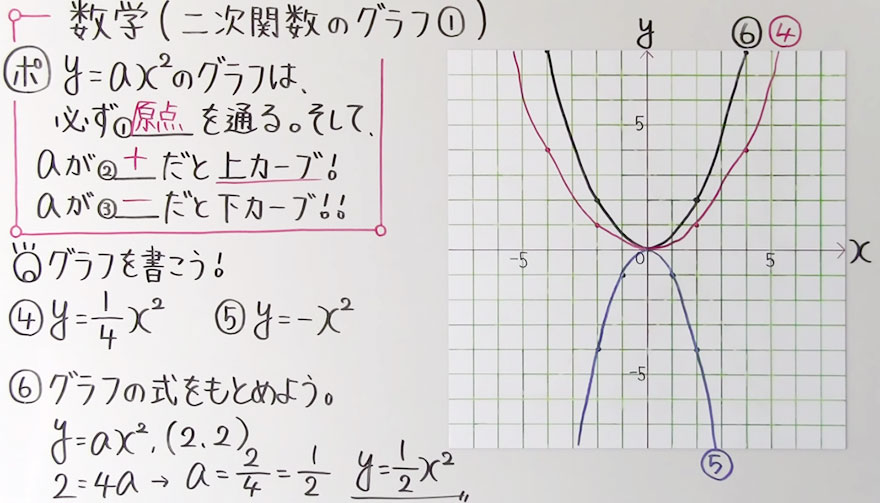 数学(二次関数のグラフ①)
ポ y=ax²のグラフは、
必ず①原点を通る。そして、
aが②+だと上カーブ!
aが③－だと下カーブ!!
グラフを書こう!
④ y=1/4x² ⑤ y=-x²
⑥ グラフの式をもとめよう。
y=ax², (2.2)
2=4a→a=2/4=1/2 y=1/2x²
y ⑥ ④
5
-5 0 5 x
-5
⑤